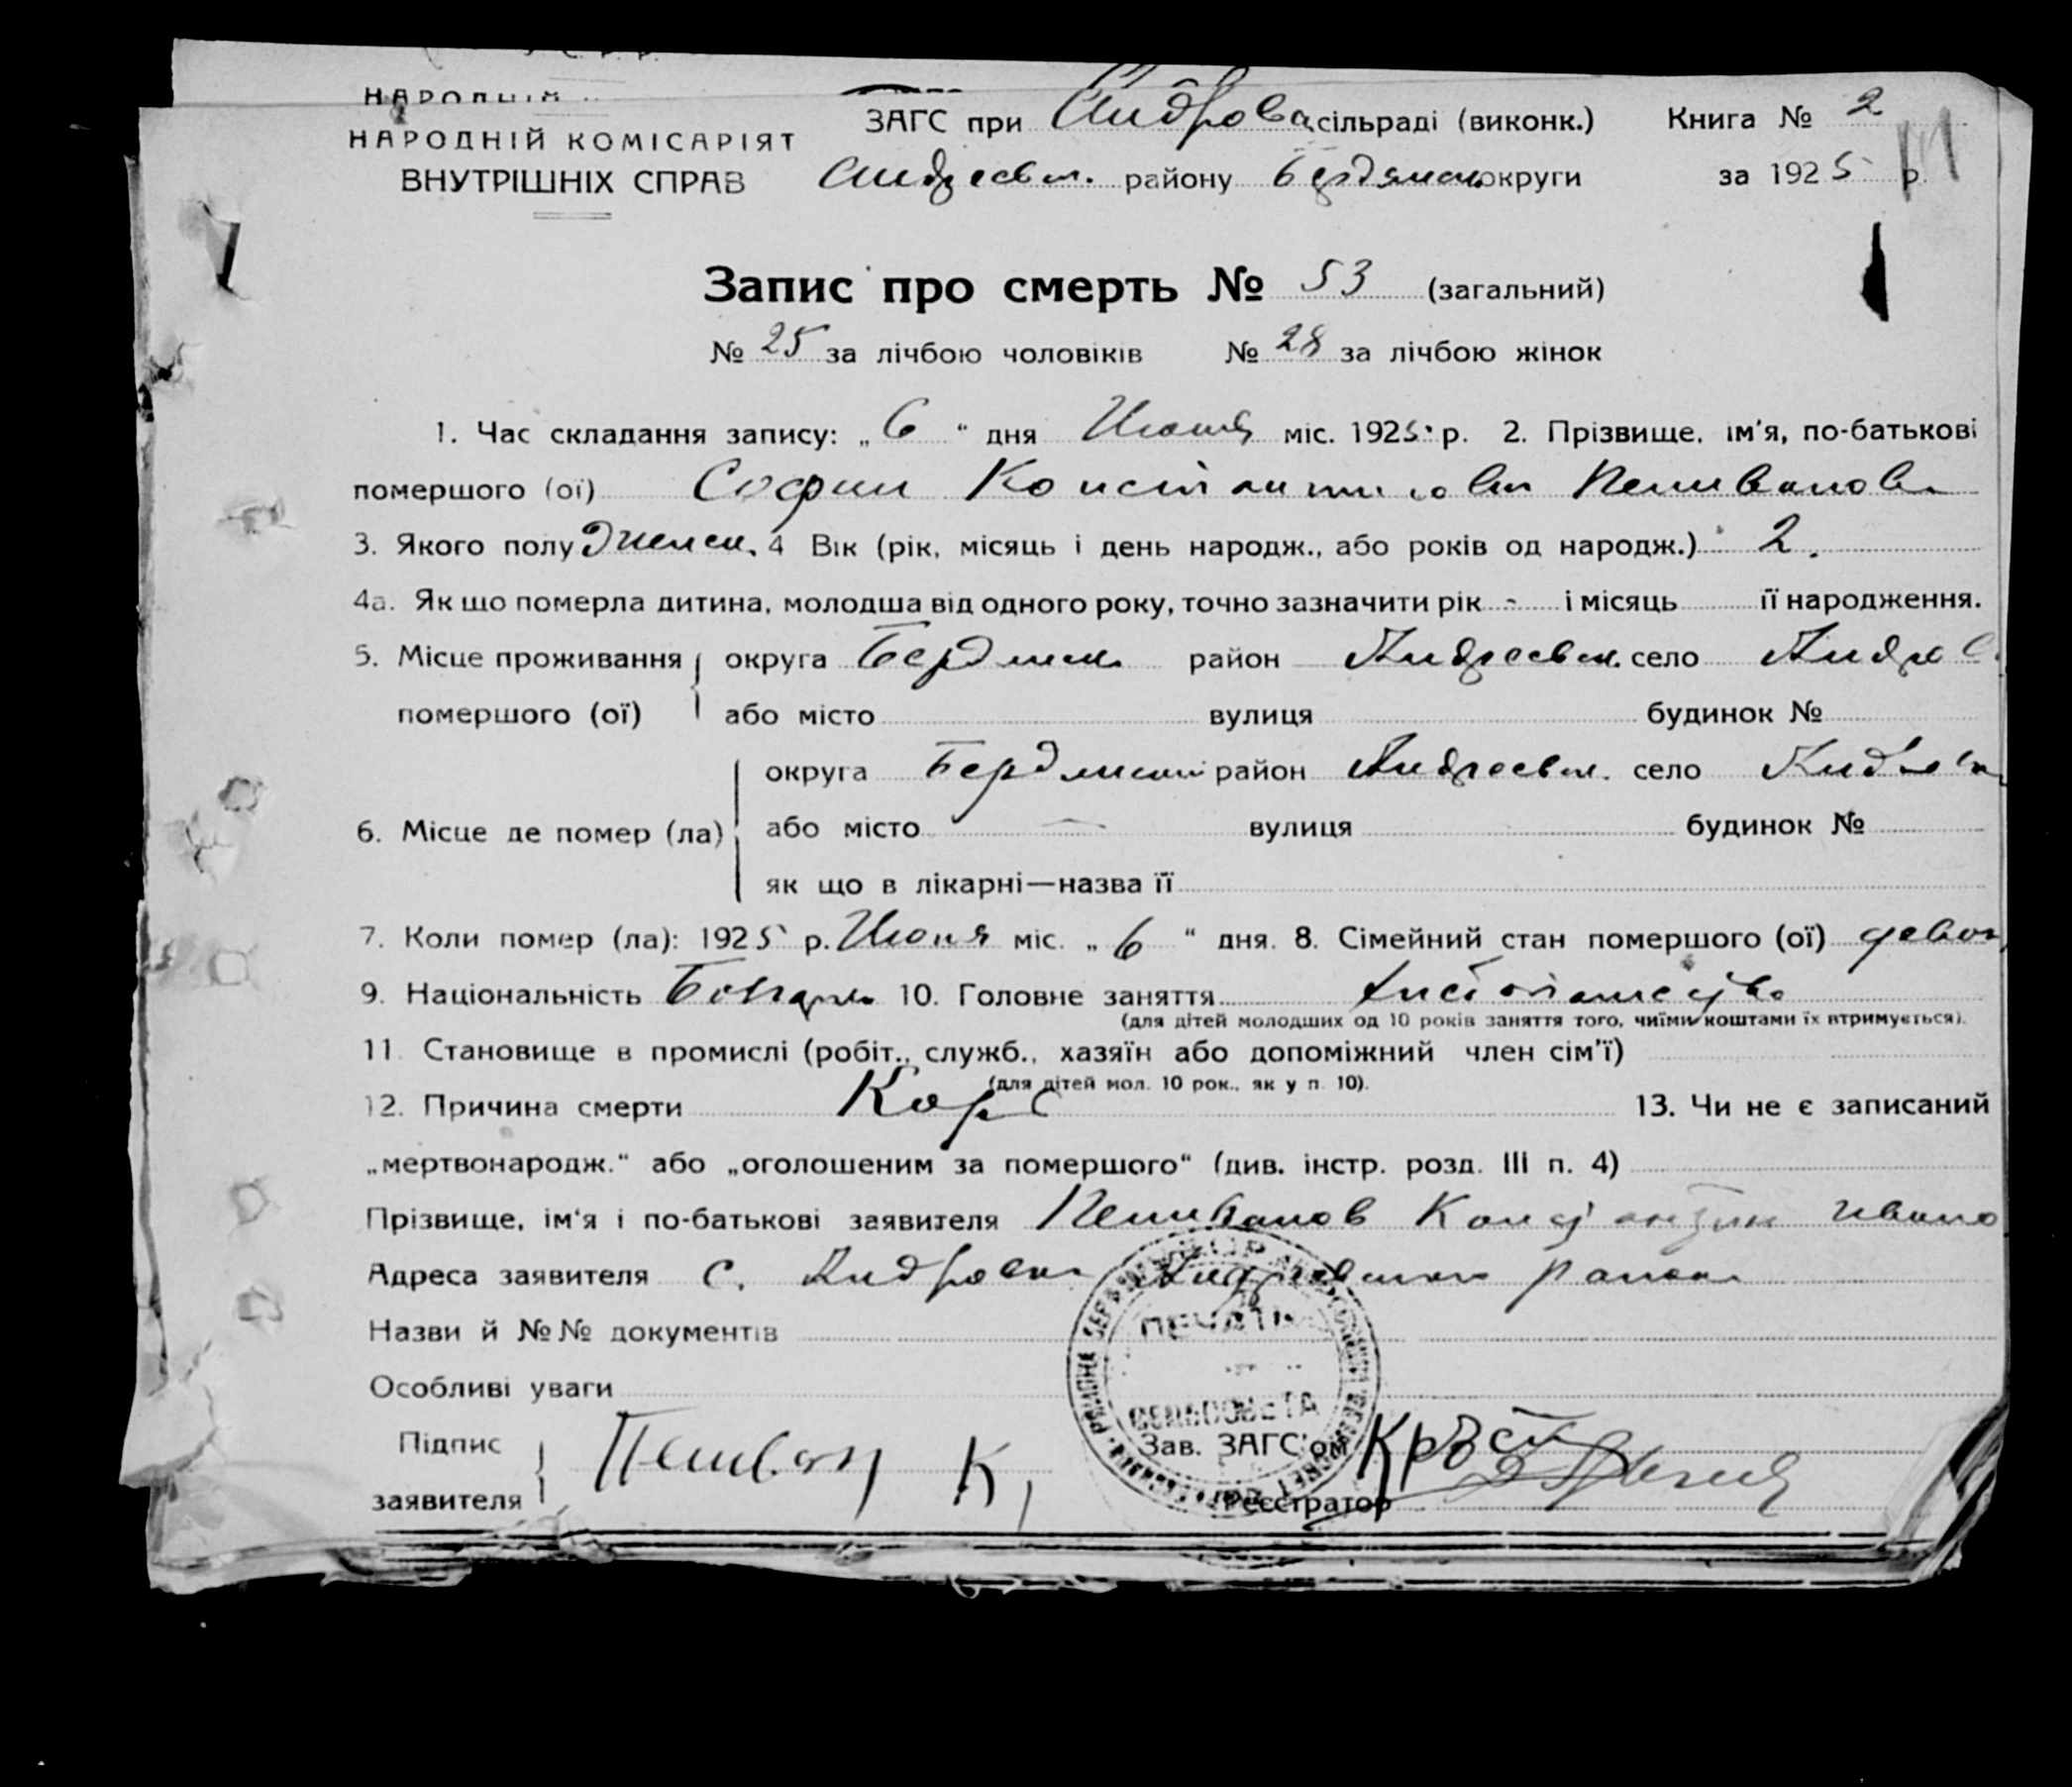 НАРОДНІЙ
НАРОДНІЙ КОМІСАРІЯТ
ВНУТРІШНІХ СПРАВ
ЗАГС при Андровка сільраді (виконк.)
Андреевск. району Бердянск. округи
Книга № 2
за 1925 р.
Запис про смерть № 53 (загальний)
№ 25 за лічбою чоловіків № 28 за лічбою жінок
1. Час складання запису: „6“ дня Июня міс. 1925 р. 2. Прізвище, ім'я, по-батькові
помершого (ої) София Константиновна Пеливанова
3. Якого полу Женск. 4 Вік (рік, місяць і день народж., або років од народж.) 2.
4а. Як що померла дитина, молодша від одного року, точно зазначити рік - і місяць її народження.
5. Місце проживання помершого (ої) округа Бердянск район Андреевск. село Андров
або місто вулиця будинок №
6. Місце де помер (ла) округа Бердянский район Андреевск. село Андровка
або місто — вулиця будинок №
як що в лікарні—назва її
7. Коли помер (ла): 1925 р. Июня міс. „6“ дня. 8. Сімейний стан помершого (ої) девоч
9. Національність Болгарк 10. Головне заняття
(для дітей молодших од 10 років заняття того, чиїми коштами їх втримується).
11. Становище в промислі (робіт., служб., хазяїн або допоміжний член сім'ї)
(для дітей мол. 10 рок., як у п. 10).
12. Причина смерти Корь 13. Чи не є записаний
„мертвонародж.“ або „оголошеним за помершого“ (див. інстр. розд. III п. 4)
Прізвище, ім'я і по-батькові заявителя Пеливанов Константин Ивано
Адреса заявителя с. Андровка Андреевского района
Назви й №№ документів
Особливі уваги
ПЕЧАТЬ
СЕЛЬСОВЕТА
Підпис заявителя Пеливан К,
Зав. ЗАГС'ом
Реєстратор